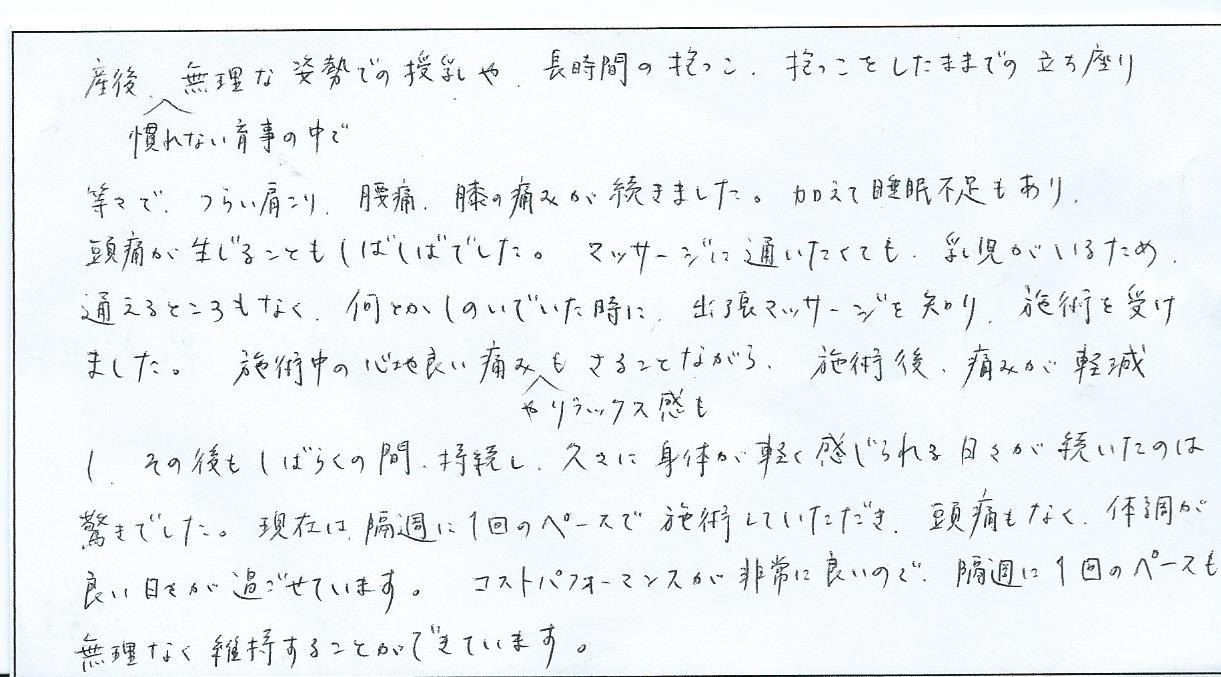 産後、無理な姿勢での授乳や、長時間の抱っこ、抱っこをしたままでの立ち座り
慣れない育事の中で
等々で、つらい肩こり、腰痛、膝の痛みが続きました。加えて睡眠不足もあり、
頭痛が生じることもしばしばでした。マッサージに通いたくても、乳児がいるため、
通えるところもなく、何とかしのいでいた時に、出張マッサージを知り、施術を受け
ました。施術中の心地良い痛みもさることながら、施術後、痛みが軽減
やリラックス感も
し、その後もしばらくの間、持続し、久々に身体が軽く感じられる日々が続いたのは
驚きでした。現在は、隔週に1回のペースで施術していただき、頭痛もなく、体調が
良い日々が過ごせています。コストパフォーマンスが非常に良いので、隔週に1回のペースも
無理なく維持することができています。